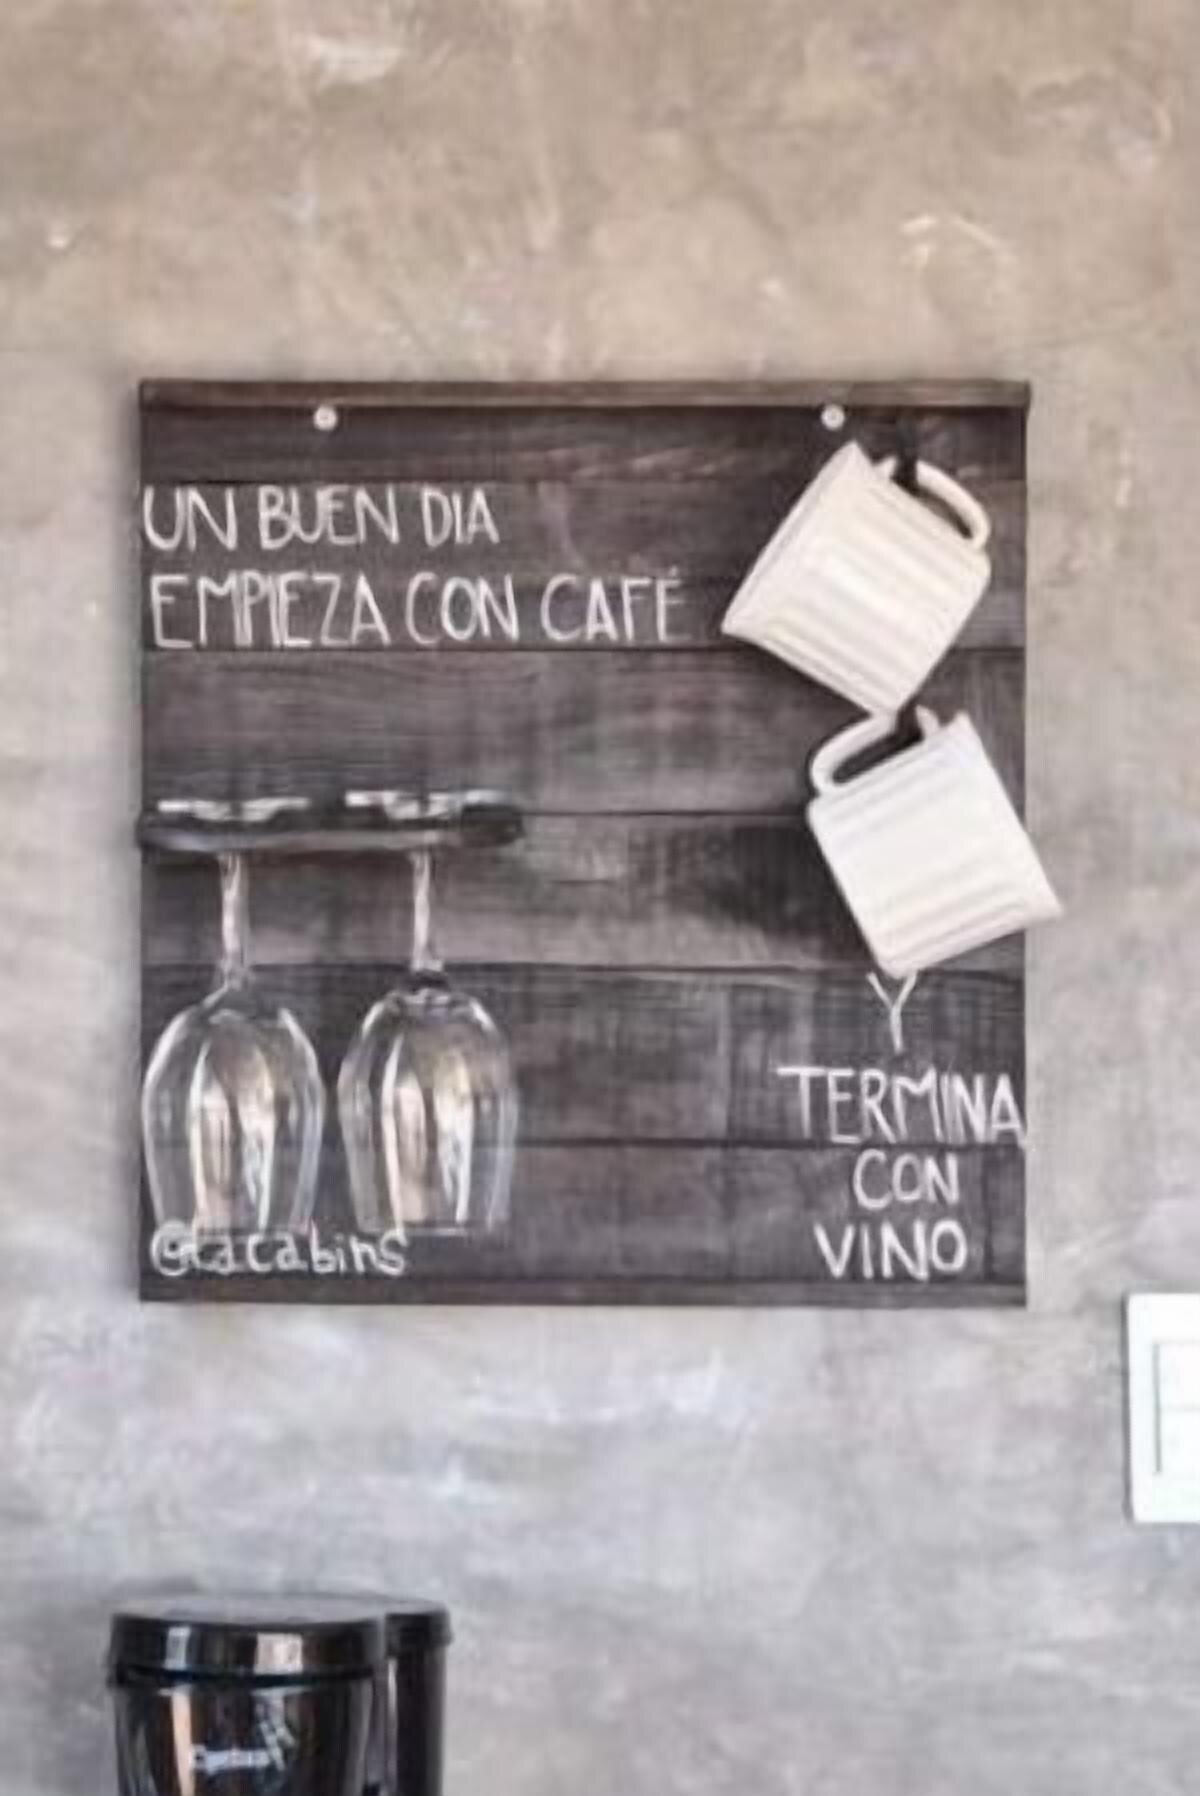 UN BUEN DIA
EMPIEZA CON CAFÉ
Y
TERMINA
CON
VINO